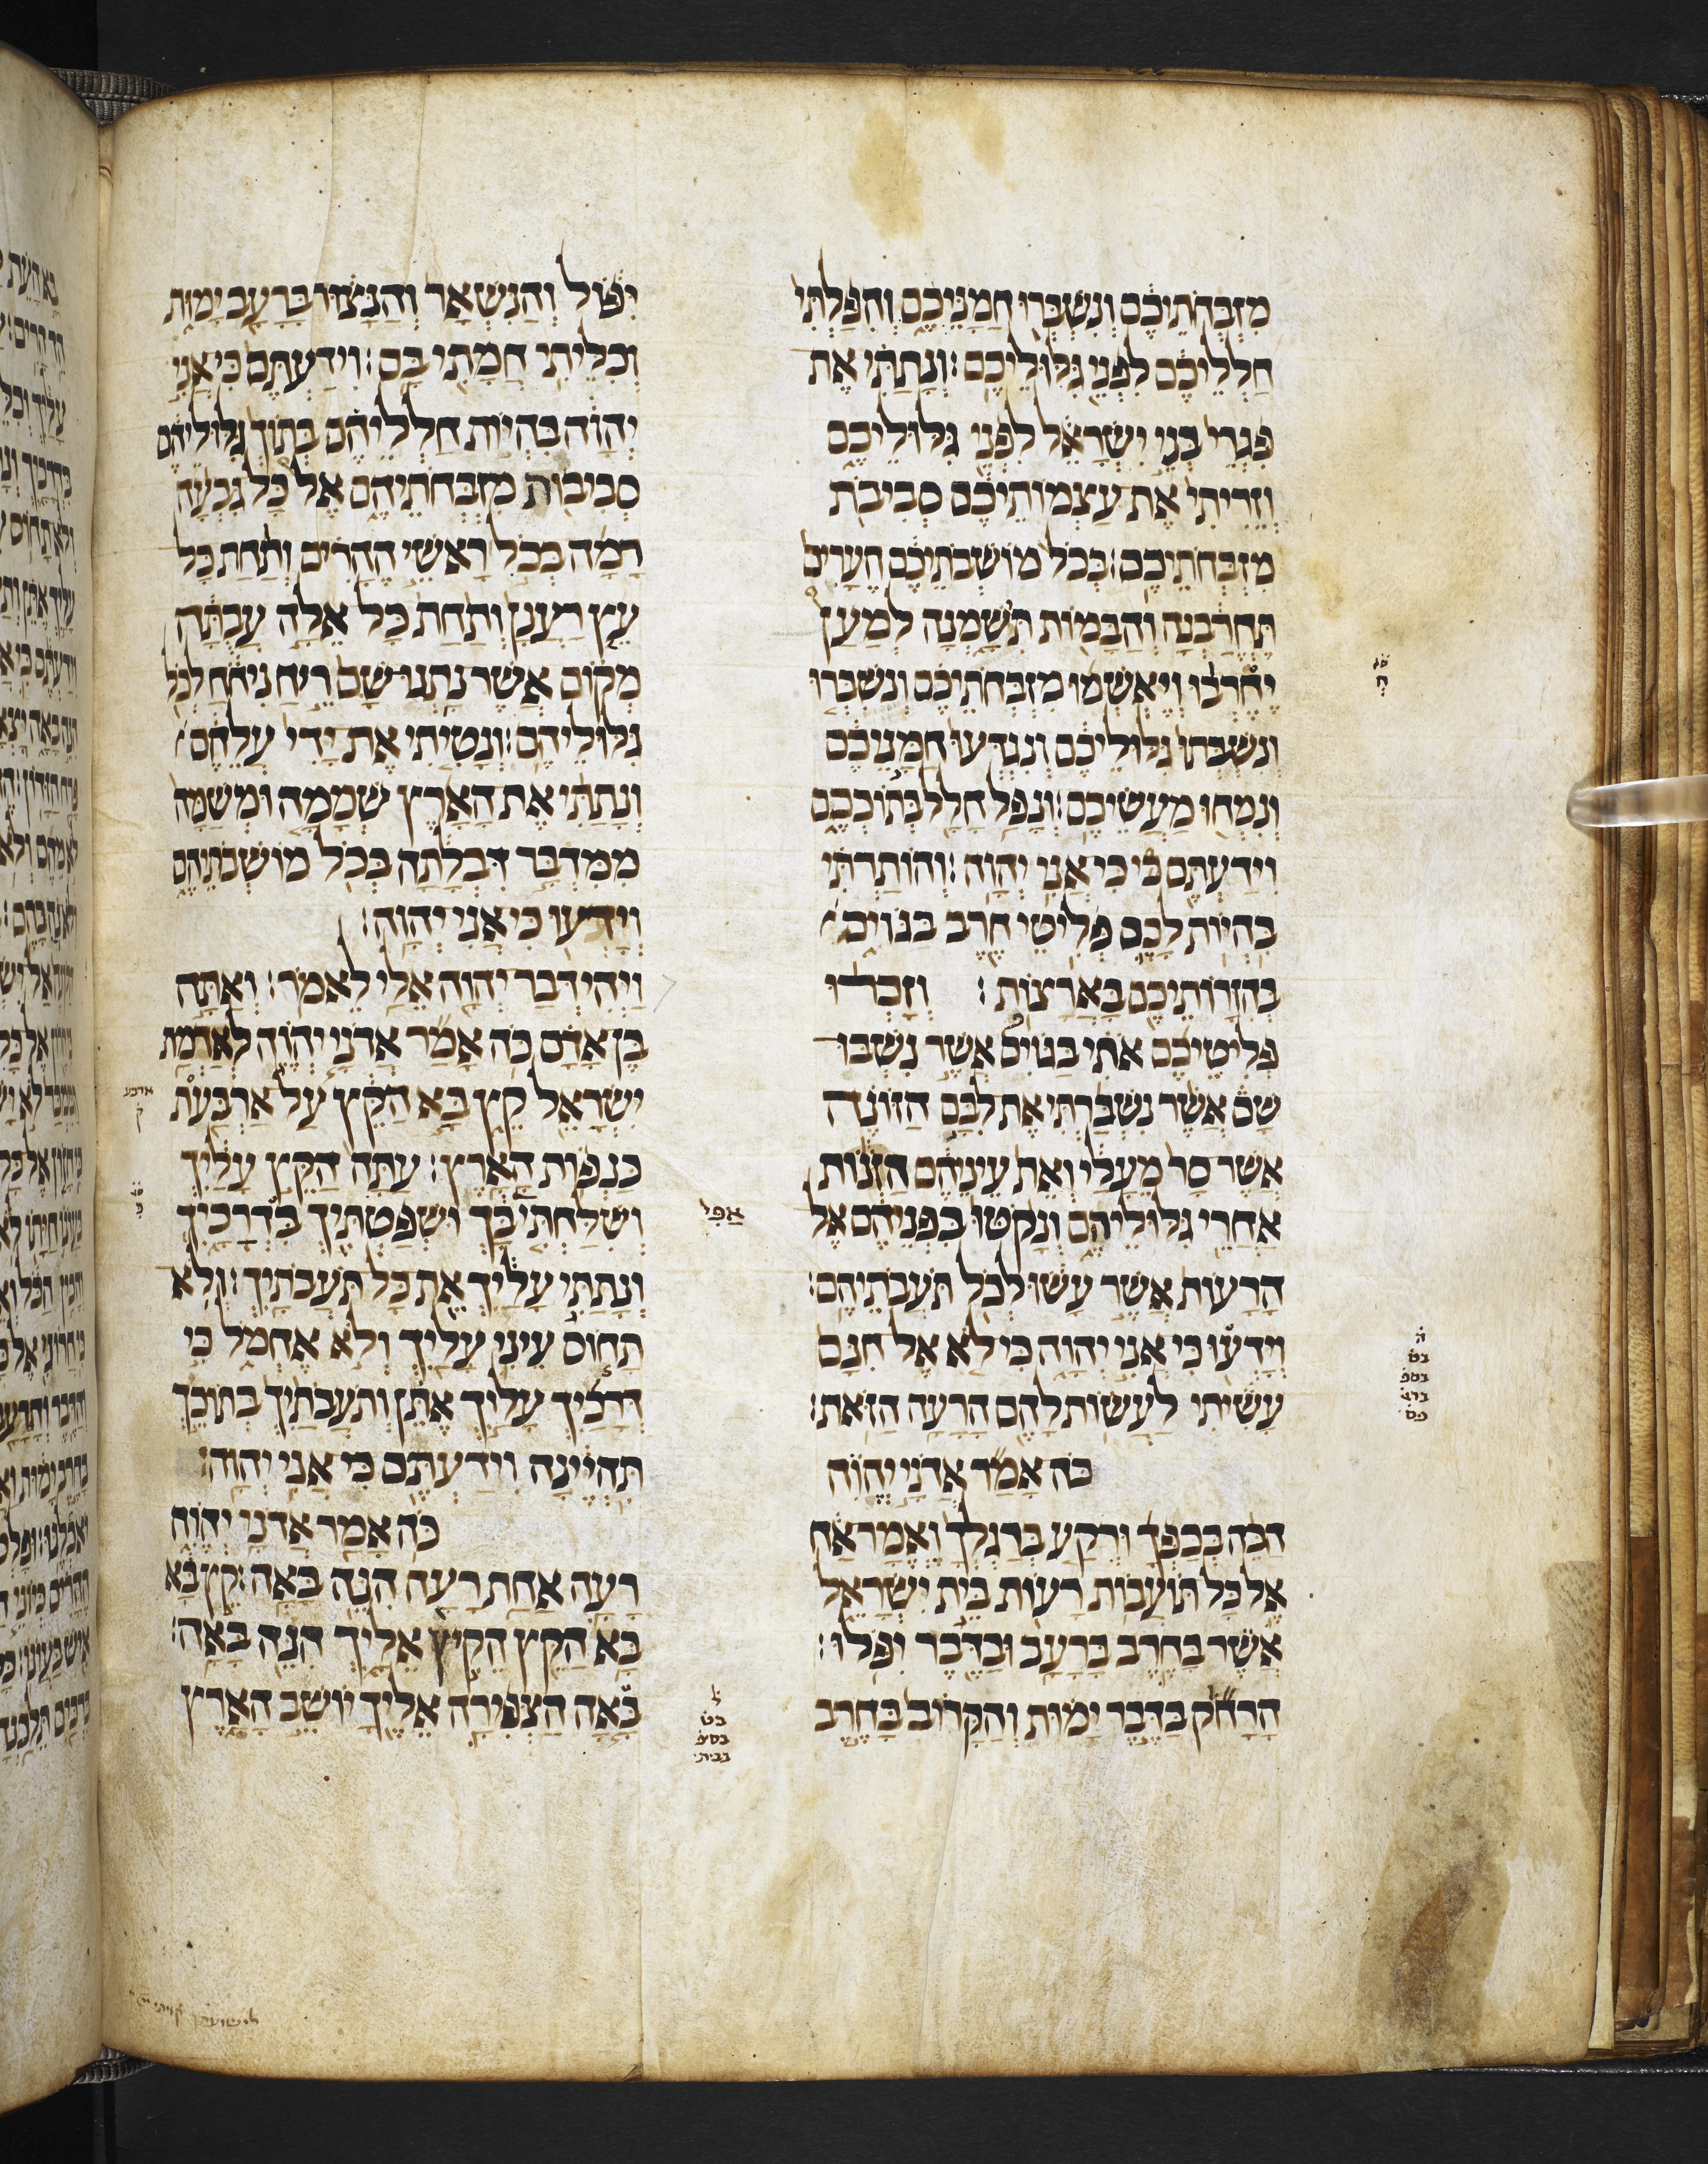 מזבחתיכם ונשברו חמניכם והפלתי
חלליכם לפני גלוליכם: ונתתי את
פגרי בני ישראל לפני גלוליכם
וזריתי את עצמותיכם סביבת
מזבחתיכם: בכל מושבתיכם הערים
תחרבנה והבמות תשמנה למען
יחרבו ויאשמו מזבחתיכם ונשברו
ונשבתו גלוליכם ונגדעו חמניכם
ונמחו מעשיכם: ונפל חלל בתוככם
וידעתם כי כי אני יהוה: והותרתי
בהיות לכם פליטי חרב בגוים
בהזרותיכם בארצות: וזכרו
פליטיכם אתי בגוים אשר נשבו
שם אשר נשברתי את לבם הזונה
אשר סר מעלי ואת עיניהם הזנות
אחרי גלוליהם ונקטו בפניהם אל
הרעות אשר עשו לכל תעבתיהם:
וידעו כי אני יהוה כי לא אל חנם
עשיתי לעשות להם הרעה הזאת:
כה אמר אדני יהוה
הכה בכפך ורקע ברגלך ואמר אח
אל כל תועבות רעות בית ישראל
אשר בחרב ברעב ובדבר יפלו:
הרחק בדבר ימות והקרוב בחרב
יפול והנשאר והנצור ברעב ימות
וכליתי חמתי בם: וידעתם כי אני
יהוה בהיות חלליהם בתוך גלוליהם
סביבות מזבחתיהם אל כל גבעה
רמה בכל ראשי ההרים ותחת כל
עץ רענן ותחת כל אלה עבתה
מקום אשר נתנו שם ריח ניחח לכל
גלוליהם: ונטיתי את ידי עליהם
ונתתי את הארץ שממה ומשמה
ממדבר דבלתה בכל מושבתיהם
וידעו כי אני יהוה:
ויהי דבר יהוה אלי לאמר: ואתה
בן אדם כה אמר אדני יהוה לאדמת
ישראל קץ בא הקץ על ארבעת
כנפות הארץ: עתה הקץ עליך
ושלחתי בך ושפטתיך בדרכיך
ונתתי עליך את כל תעבתיך: ולא
תחוס עיני עליך ולא אחמל כי
דרכיך עליך אתן ותעבתיך בתוכך
תהיינה וידעתם כי אני יהוה:
כה אמר אדני יהוה
רעה אחת רעה הנה באה: קץ בא
בא הקץ הקיץ אליך הנה באה:
באה הצפירה אליך יושב הארץ
אפי
ארבע
ק
לישועתך קויתי